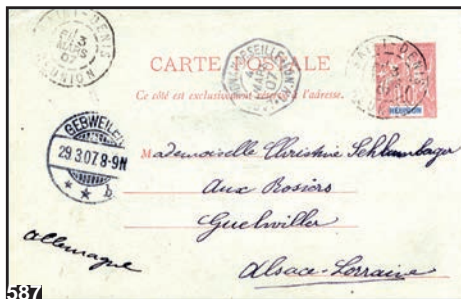 SAINT-DENIS
3
MARS
07
RÉUNION
CARTE POSTALE
Ce côté est exclusivement réservé à l'adresse.
MARSEILLE
MARS
07
SAINT-DENIS
RÉUNION
10
REUNION
GEBWEILER
29.3.07.8-9N
* * b
Mademoiselle Christine Schlumberger
Aux Rosiers
Guebwiller
Allemagne
Alsace-Lorraine
587